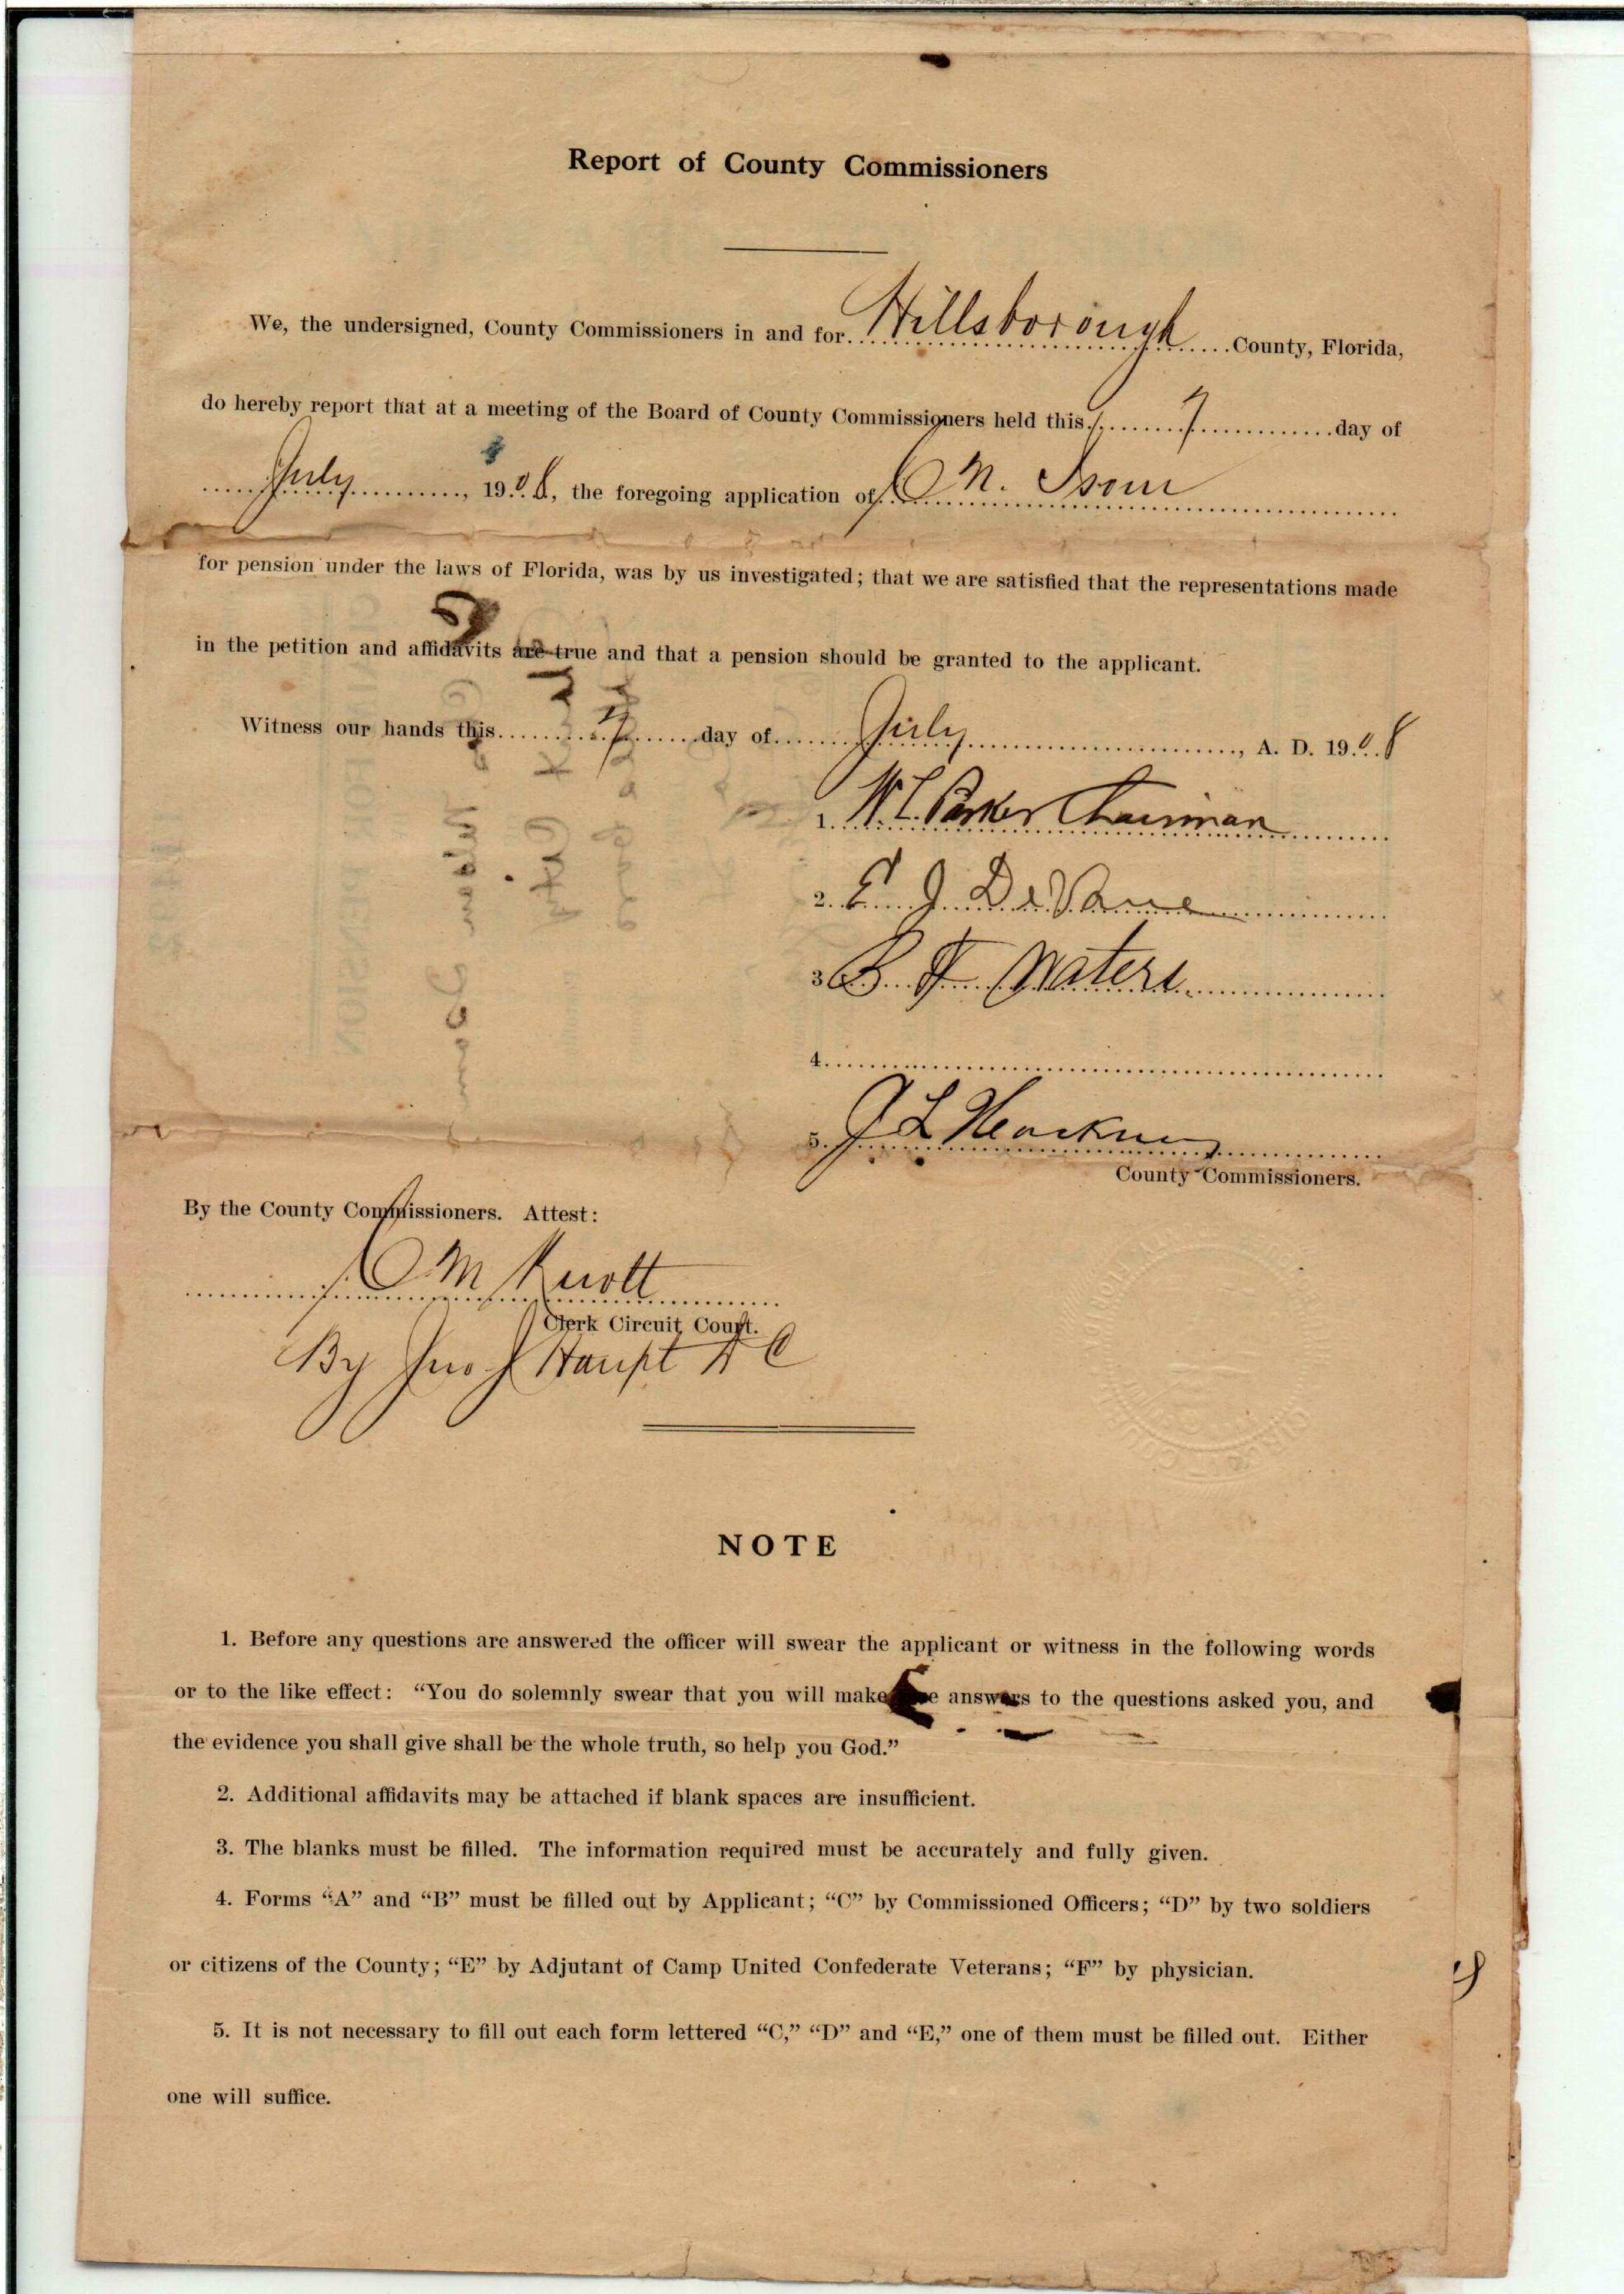 Report of County Commissioners
We, the undersigned, County Commissioners in and for Hillsborough County, Florida,
do hereby report that at a meeting of the Board of County Commissioners held this 7 day of
July, 1908, the foregoing application of C N. Isom
for pension under the laws of Florida, was by us investigated; that we are satisfied that the representations made
in the petition and affidavits are true and that a pension should be granted to the applicant.
Witness our hands this 7 day of July, A. D. 1908
1. W. L. Parker Chairman
2. E. J. DeVane
3. B. F. Waters
4.
5. J L
County Commissioners.
By the County Commissioners. Attest:
C M Knott
Clerk Circuit Court.
By Jno J Haupt D C
NOTE
1. Before any questions are answered the officer will swear the applicant or witness in the following words
or to the like effect: “You do solemnly swear that you will make answers to the questions asked you, and
the evidence you shall give shall be the whole truth, so help you God.”
2. Additional affidavits may be attached if blank spaces are insufficient.
3. The blanks must be filled. The information required must be accurately and fully given.
4. Forms “A” and “B” must be filled out by Applicant; “C” by Commissioned Officers; “D” by two soldiers
or citizens of the County; “E” by Adjutant of Camp United Confederate Veterans; “F” by physician.
5. It is not necessary to fill out each form lettered “C,” “D” and “E,” one of them must be filled out. Either
one will suffice.